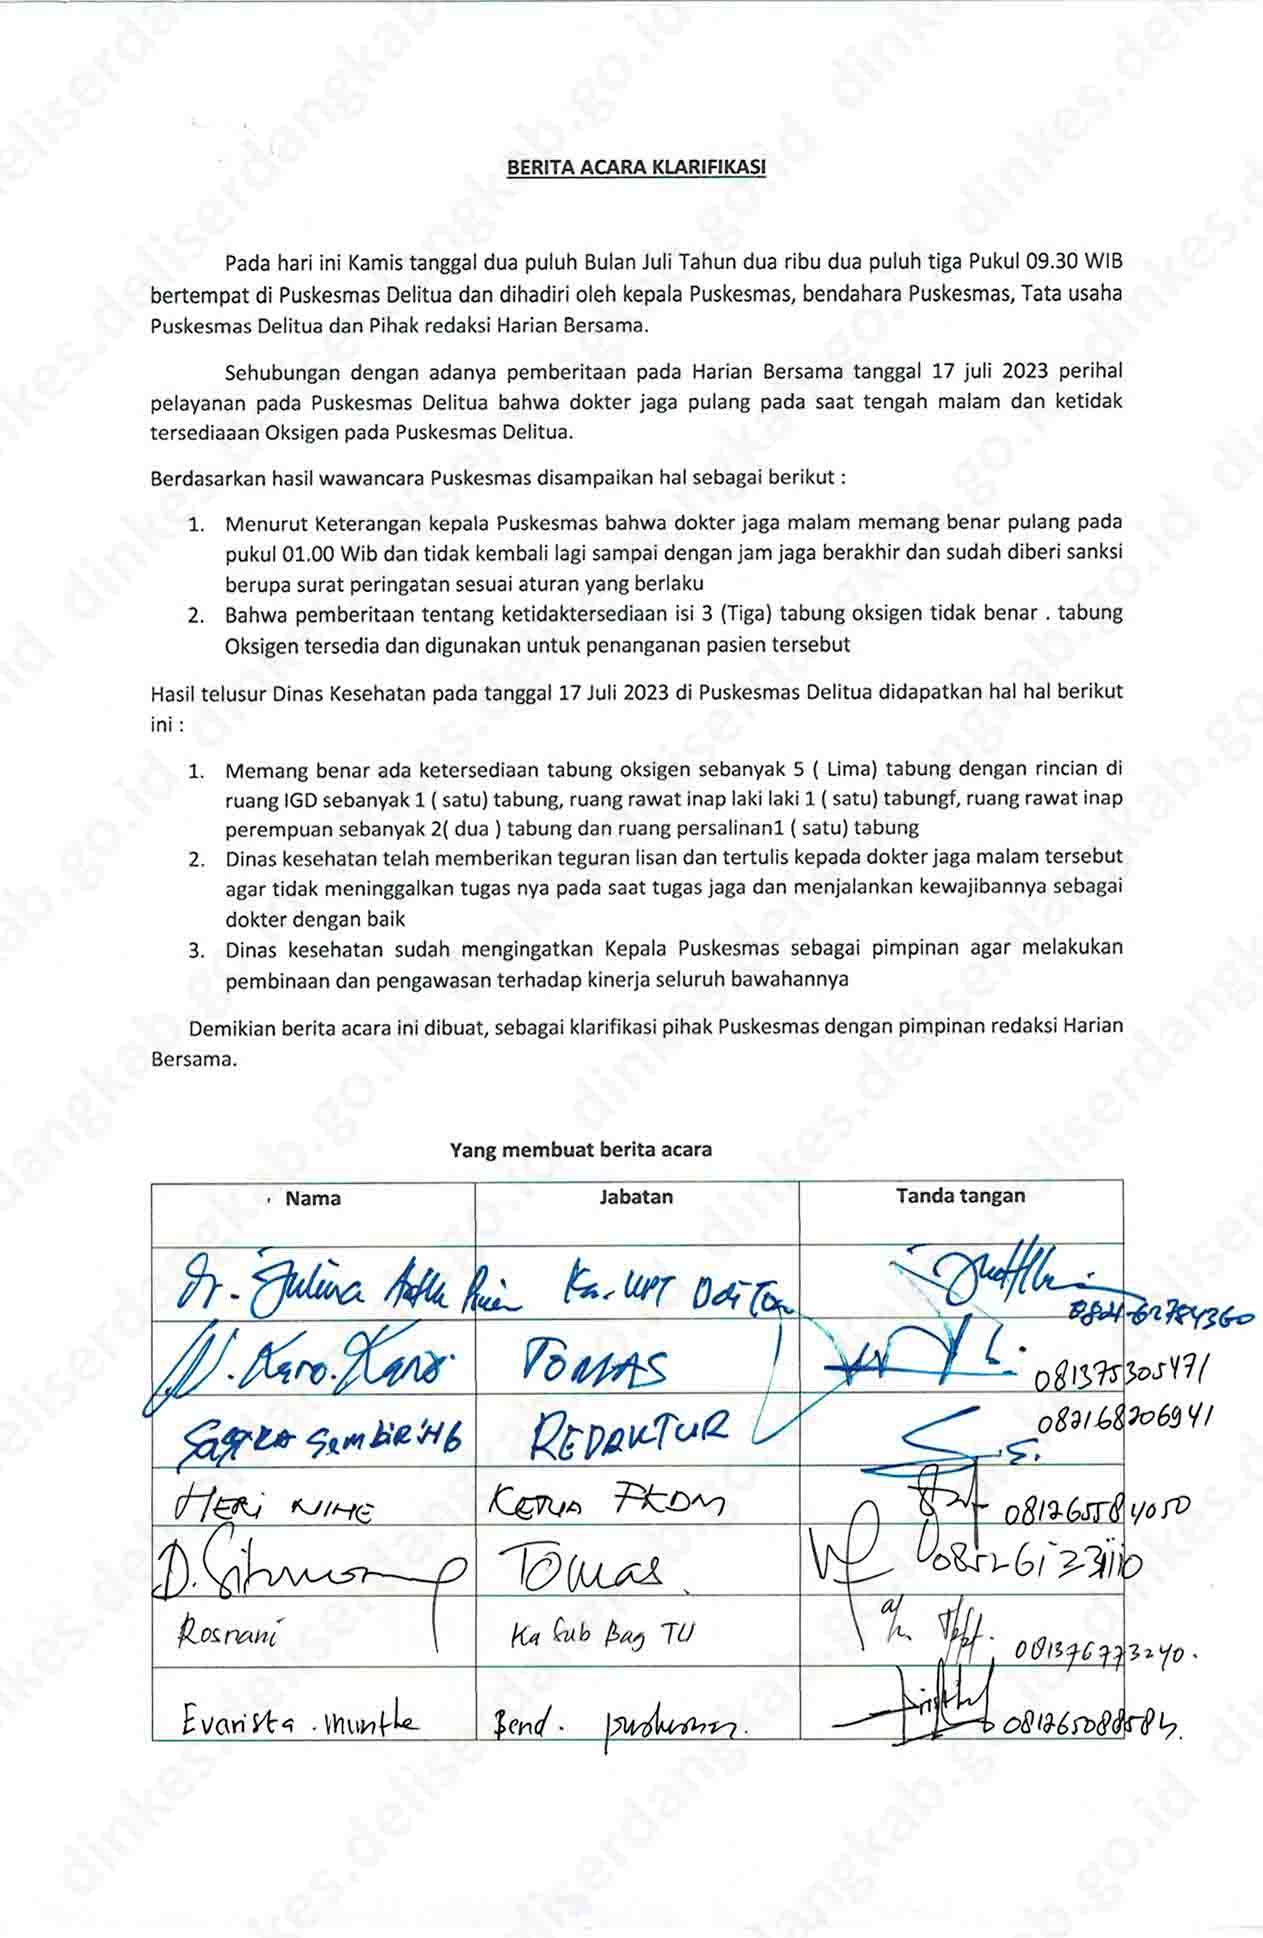 BERITA ACARA KLARIFIKASI
Pada hari ini Kamis tanggal dua puluh Bulan Juli Tahun dua ribu dua puluh tiga Pukul 09.30 WIB
bertempat di Puskesmas Delitua dan dihadiri oleh kepala Puskesmas, bendahara Puskesmas, Tata usaha
Puskesmas Delitua dan Pihak redaksi Harian Bersama.
Sehubungan dengan adanya pemberitaan pada Harian Bersama tanggal 17 juli 2023 perihal
pelayanan pada Puskesmas Delitua bahwa dokter jaga pulang pada saat tengah malam dan ketidak
tersediaaan Oksigen pada Puskesmas Delitua.
Berdasarkan hasil wawancara Puskesmas disampaikan hal sebagai berikut :
1. Menurut Keterangan kepala Puskesmas bahwa dokter jaga malam memang benar pulang pada
pukul 01.00 Wib dan tidak kembali lagi sampai dengan jam jaga berakhir dan sudah diberi sanksi
berupa surat peringatan sesuai aturan yang berlaku
2. Bahwa pemberitaan tentang ketidaktersediaan isi 3 (Tiga) tabung oksigen tidak benar . tabung
Oksigen tersedia dan digunakan untuk penanganan pasien tersebut
Hasil telusur Dinas Kesehatan pada tanggal 17 Juli 2023 di Puskesmas Delitua didapatkan hal hal berikut
ini :
1. Memang benar ada ketersediaan tabung oksigen sebanyak 5 ( Lima) tabung dengan rincian di
ruang IGD sebanyak 1 ( satu) tabung, ruang rawat inap laki laki 1 ( satu) tabungf, ruang rawat inap
perempuan sebanyak 2( dua ) tabung dan ruang persalinan1 ( satu) tabung
2. Dinas kesehatan telah memberikan teguran lisan dan tertulis kepada dokter jaga malam tersebut
agar tidak meninggalkan tugas nya pada saat tugas jaga dan menjalankan kewajibannya sebagai
dokter dengan baik
3. Dinas kesehatan sudah mengingatkan Kepala Puskesmas sebagai pimpinan agar melakukan
pembinaan dan pengawasan terhadap kinerja seluruh bawahannya
Demikian berita acara ini dibuat, sebagai klarifikasi pihak Puskesmas dengan pimpinan redaksi Harian
Bersama.
Yang membuat berita acara
Nama Jabatan Tanda tangan
dr. Julina Ka. UPT
N. Karo. Karo TOMAS 081375305471
Sembiring REDAKTUR 082168206941
HERI KETUA FKDM 081265584050
D. TOMAS
Rosnani Ka Sub Bag TU 081376773240.
Evarista . munthe Bend . puskesmas.
dinkes.deliserdangkab.go.id